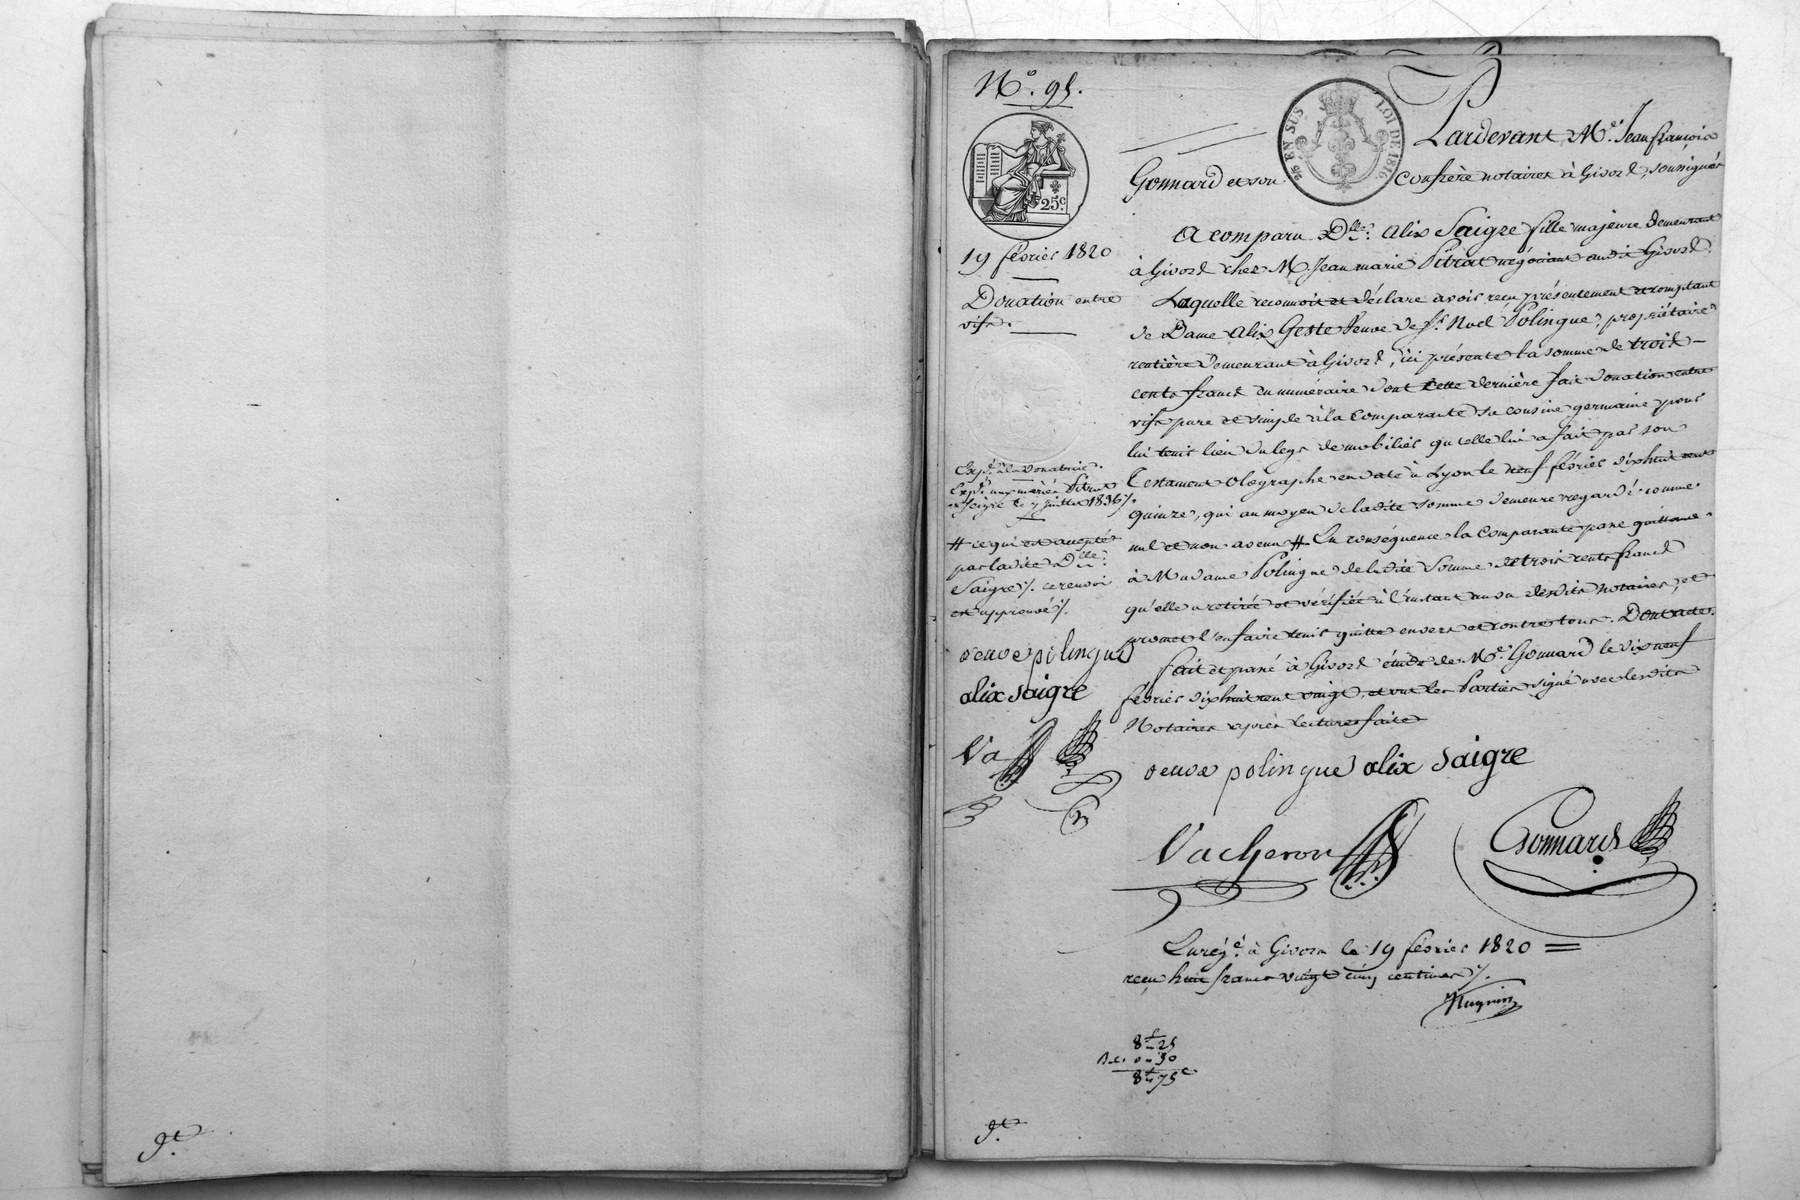 N.° 95.
25.c
2/6 EN SUS LOI DE 1816.
19 février 1820
Donation entre
vifs.
Exp.on à la donatrice.
Exp.on aux mariés Pitrat
et Seigre le 7 juillet 1836 /.
# ce qui est accepté
par ladite D.lle
Saigre /. ce renvoi
est approuvé /.
veuve polingue
alix saigre
Va
Pardevant M.e Jean françois
Gonnard et son confrère notaires à Givord, soussignés
A comparu D.lle Alix Saigre fille majeure demeurant
à Givord chez M. Jean marie Pitrat négociant audit Givord.
Laquelle reconnoit et déclare avoir reçu présentement et comptant
de Dame Alix Geste Veuve de S.r Noel Polingue, propriétaire
rentière demeurant à Givord, ici présente la somme de trois
cents francs en numéraire dont cette dernière fait donation entre
vifs pure et simple à la comparante sa cousine germaine pour
lui tenir lieu du legs de mobilier qu'elle lui a fait par son
Testament olographe en date à Lyon le neuf février dix huit cent
quinze, qui au moyen de ladite somme demeure regardé comme
nul et non avenu #. En conséquence la comparante passe quittance
à Madame Polingue de ladite somme de trois cents francs
qu'elle a retirée et vérifiée à l'instant au vu desdits notaires, et
promet l'en faire tenir quitte envers et contre tous. Dont acte.
fait et passé à Givord étude de M.e Gonnard le dix neuf
février dix huit cent vingt, et ont les Parties signé avec lesdits
Notaires après lecture faite
veuve polingue alix saigre
Vacheron Gonnard
Enreg.é à Givors le 19 février 1820
reçu huit francs vingt cinq centimes /.
8f 25
Dec. 0 50
8f 75c
g.t
g.t